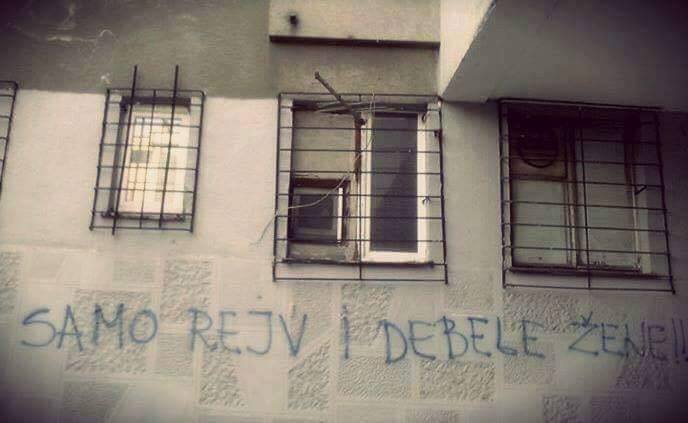 SAMO REJV I DEBELE ŽENE!!